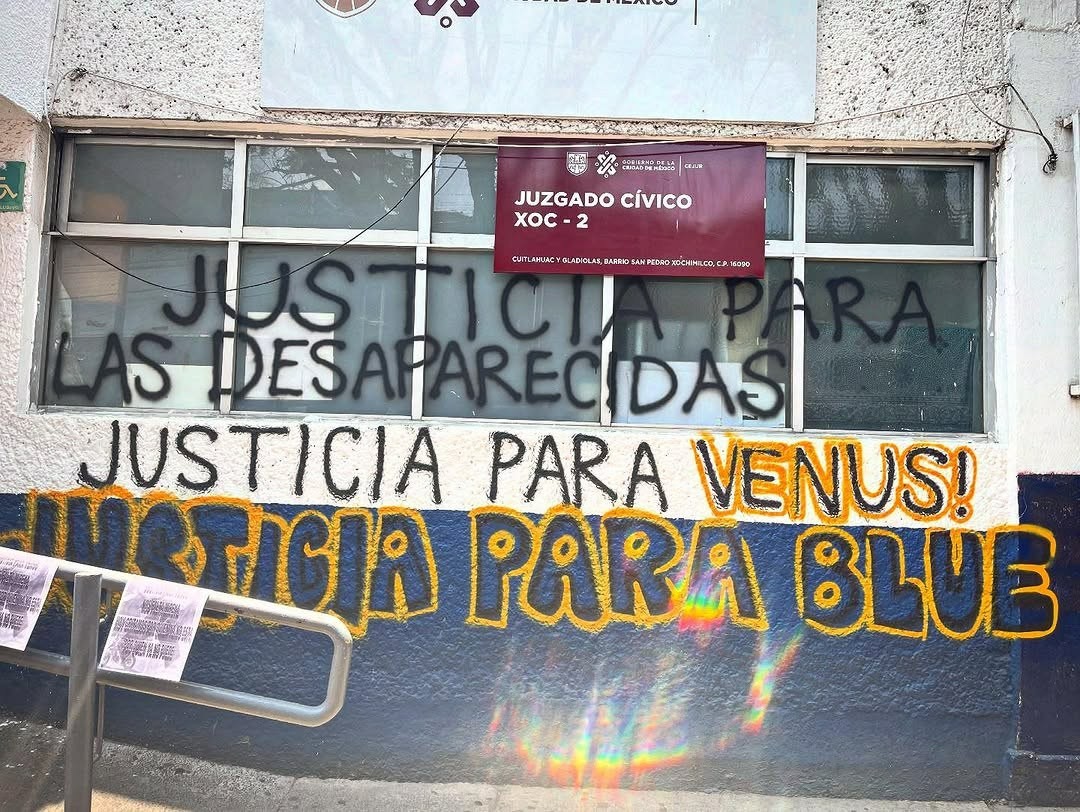 CIUDAD DE MÉXICO
GOBIERNO DE LA
CIUDAD DE MÉXICO
CEJUR
JUZGADO CÍVICO
XOC - 2
CUITLAHUAC Y GLADIOLAS, BARRIO SAN PEDRO XOCHIMILCO, C.P. 16090
JUSTICIA PARA
LAS DESAPARECIDAS
JUSTICIA PARA VENUS!
JUSTICIA PARA BLUE